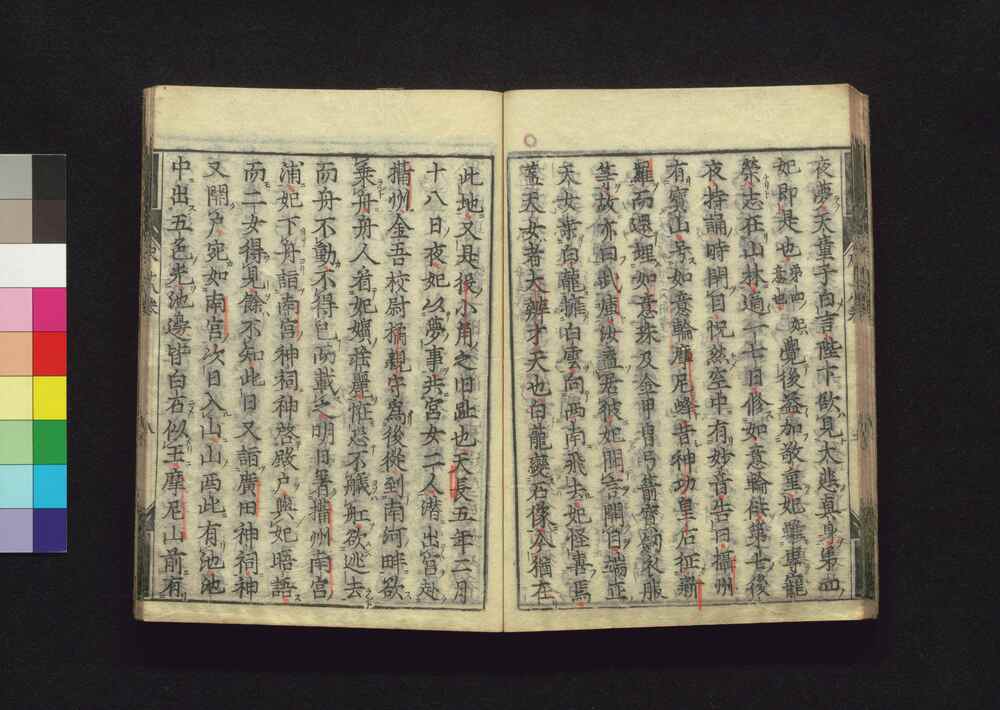 夜夢天童子白言陛下欲見大悲真身第四
妃即是也第四妃意也覺後益加敬重妃雖專寵
榮志在山林適一七日修如意輪供第七後
夜持誦時閉目怳然空中有妙音告曰攝州
有寶山号如意輪摩尼峰昔神功皇后征新
羅而還埋如意珠及金甲冑弓箭寶釼衣服
等故亦曰武庫汝盍居彼妃聞告開目端正
天女乘白龍擁白雲向西南飛去妃怪喜焉
蓋天女者大辨才天也白龍變石像今猶在
此地又是役小角之旧趾也天長五年二月
十八日夜妃以夢事共宮女二人潜出宮赴
攝州金吾校尉橘親守爲後從到南河畔欲
乘舟舟人看妃嬪莊麗恠恐不艤舡欲逃去
而舟不動不得已而載之明日著攝州南宮
浦妃下舟詣南宮神祠神啓殿戸與妃晤語
而二女得見餘不知此日又詣廣田神祠神
又開戸宛如南宮次日入山山西此有池池
中出五色光池邊皆白石似玉摩尼山前有